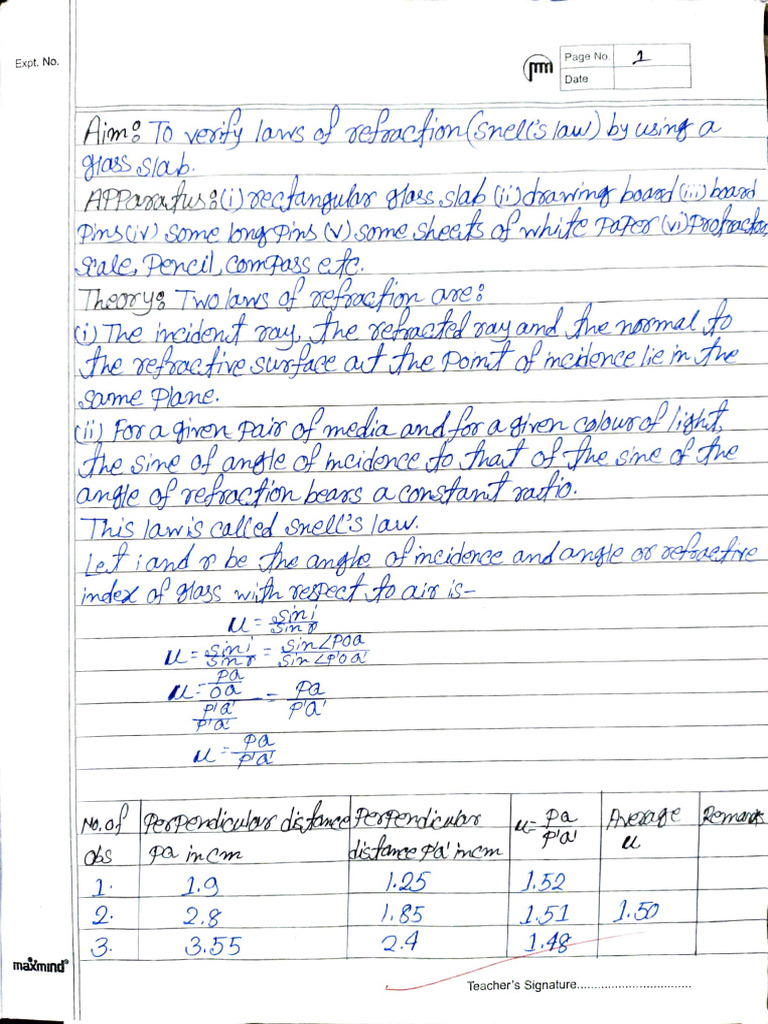 Expt. No.
Page No. 1
Date
Aim: To verify laws of refraction (Snell's law) by using a
glass slab.
Apparatus: (i) rectangular glass slab (ii) drawing board (iii) board
Pins (iv) some long Pins (v) some sheets of white Paper (vi) Protractor
Scale, Pencil, compass etc.
Theory: Two laws of refraction are:
(i) The incident ray, the refracted ray and the normal to
the refractive surface at the Point of incidence lie in the
same Plane.
(ii) For a given Pair of media and for a given colour of light,
the sine of angle of incidence to that of the sine of the
angle of refraction bears a constant ratio.
This law is called Snell's law.
Let i and r be the angle of incidence and angle or refractive
index of glass with respect to air is-
u = sin i / sin r
u = sin i / sin r = sin∠POQ / sin∠P'OQ'
u = (PQ / OQ) / (P'Q' / P'Q') = PQ / P'Q'
u = PQ / P'Q'
No. of obs | Perpendicular distance PQ in cm | Perpendicular distance P'Q' in cm | u = PQ / P'Q' | Average u | Remarks
1. 1.9 1.25 1.52
2. 2.8 1.85 1.51 1.50
3. 3.55 2.4 1.48
maxmind
Teacher's Signature................................